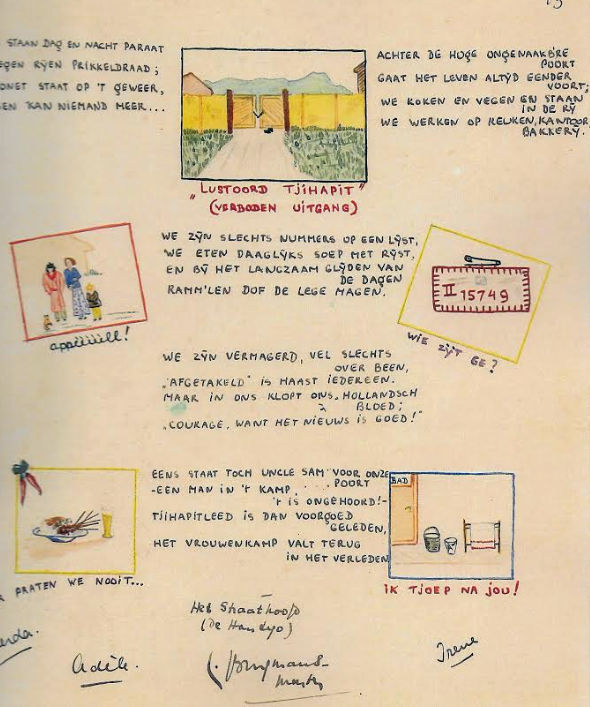 13
STAAN DAG EN NACHT PARAAT
RYEN PRIKKELDRAAD;
STAAT OP 'T GEWEER,
KAN NIEMAND MEER...
ACHTER DE HOGE ONGENAAKB'RE
POORT
GAAT HET LEVEN ALTYD EENDER
VOORT;
WE KOKEN EN VEGEN EN STAAN
IN DE RY
WE WERKEN OP KEUKEN, KANTOOR,
BAKKERY.
"LUSTOORD TJIHAPIT"
(VERBODEN UITGANG)
WE ZYN SLECHTS NUMMERS OP EEN LYST,
WE ETEN DAAGLYKS SOEP MET RYST,
EN BY HET LANGZAAM GLYDEN VAN
DE DAGEN
RAMM'LEN DOF DE LEGE MAGEN.
appèèèèll!
II 15749
WIE ZYT GE?
WE ZYN VERMAGERD, VEL SLECHTS
OVER BEEN,
"AFGETAKELD" IS HAAST IEDEREEN.
MAAR IN ONS KLOPT ONS HOLLANDSCH
BLOED;
"COURAGE, WANT HET NIEUWS IS GOED!"
EENS STAAT TOCH UNCLE SAM VOOR ONZE
POORT
-EEN MAN IN 'T KAMP....
'T IS ONGEHOORD!-
TJIHAPITLEED IS DAN VOORGOED
GELEDEN,
HET VROUWENKAMP VALT TERUG
IN HET VERLEDEN
BAD
PRATEN WE NOOIT...
IK TJOEP NA JOU!
Het Straathoofd
(De Hantjo)
Adèle.
Irene